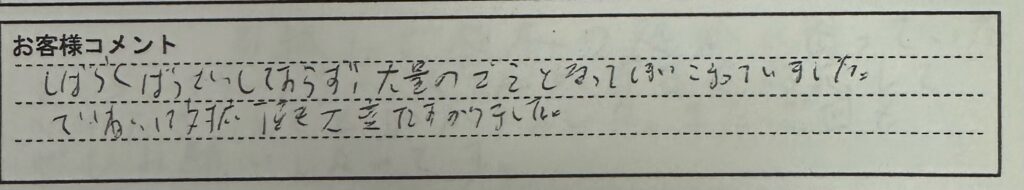 お客様コメント
しばらくばっさいしておらず、大量のゴミとなってしまいこまっていました。
ていねいに対応頂き大変たすかりました。